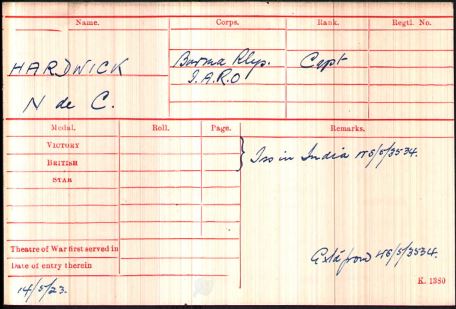 Name. Corps. Rank. Regtl. No.
HARDWICK Burma Rlys. Capt
N de C. I.A.R.O
Medal. Roll. Page. Remarks.
VICTORY
BRITISH Iss in India NS/5/3534.
STAR
Theatre of War first served in
Date of entry therein
14/5/23. K. 1380